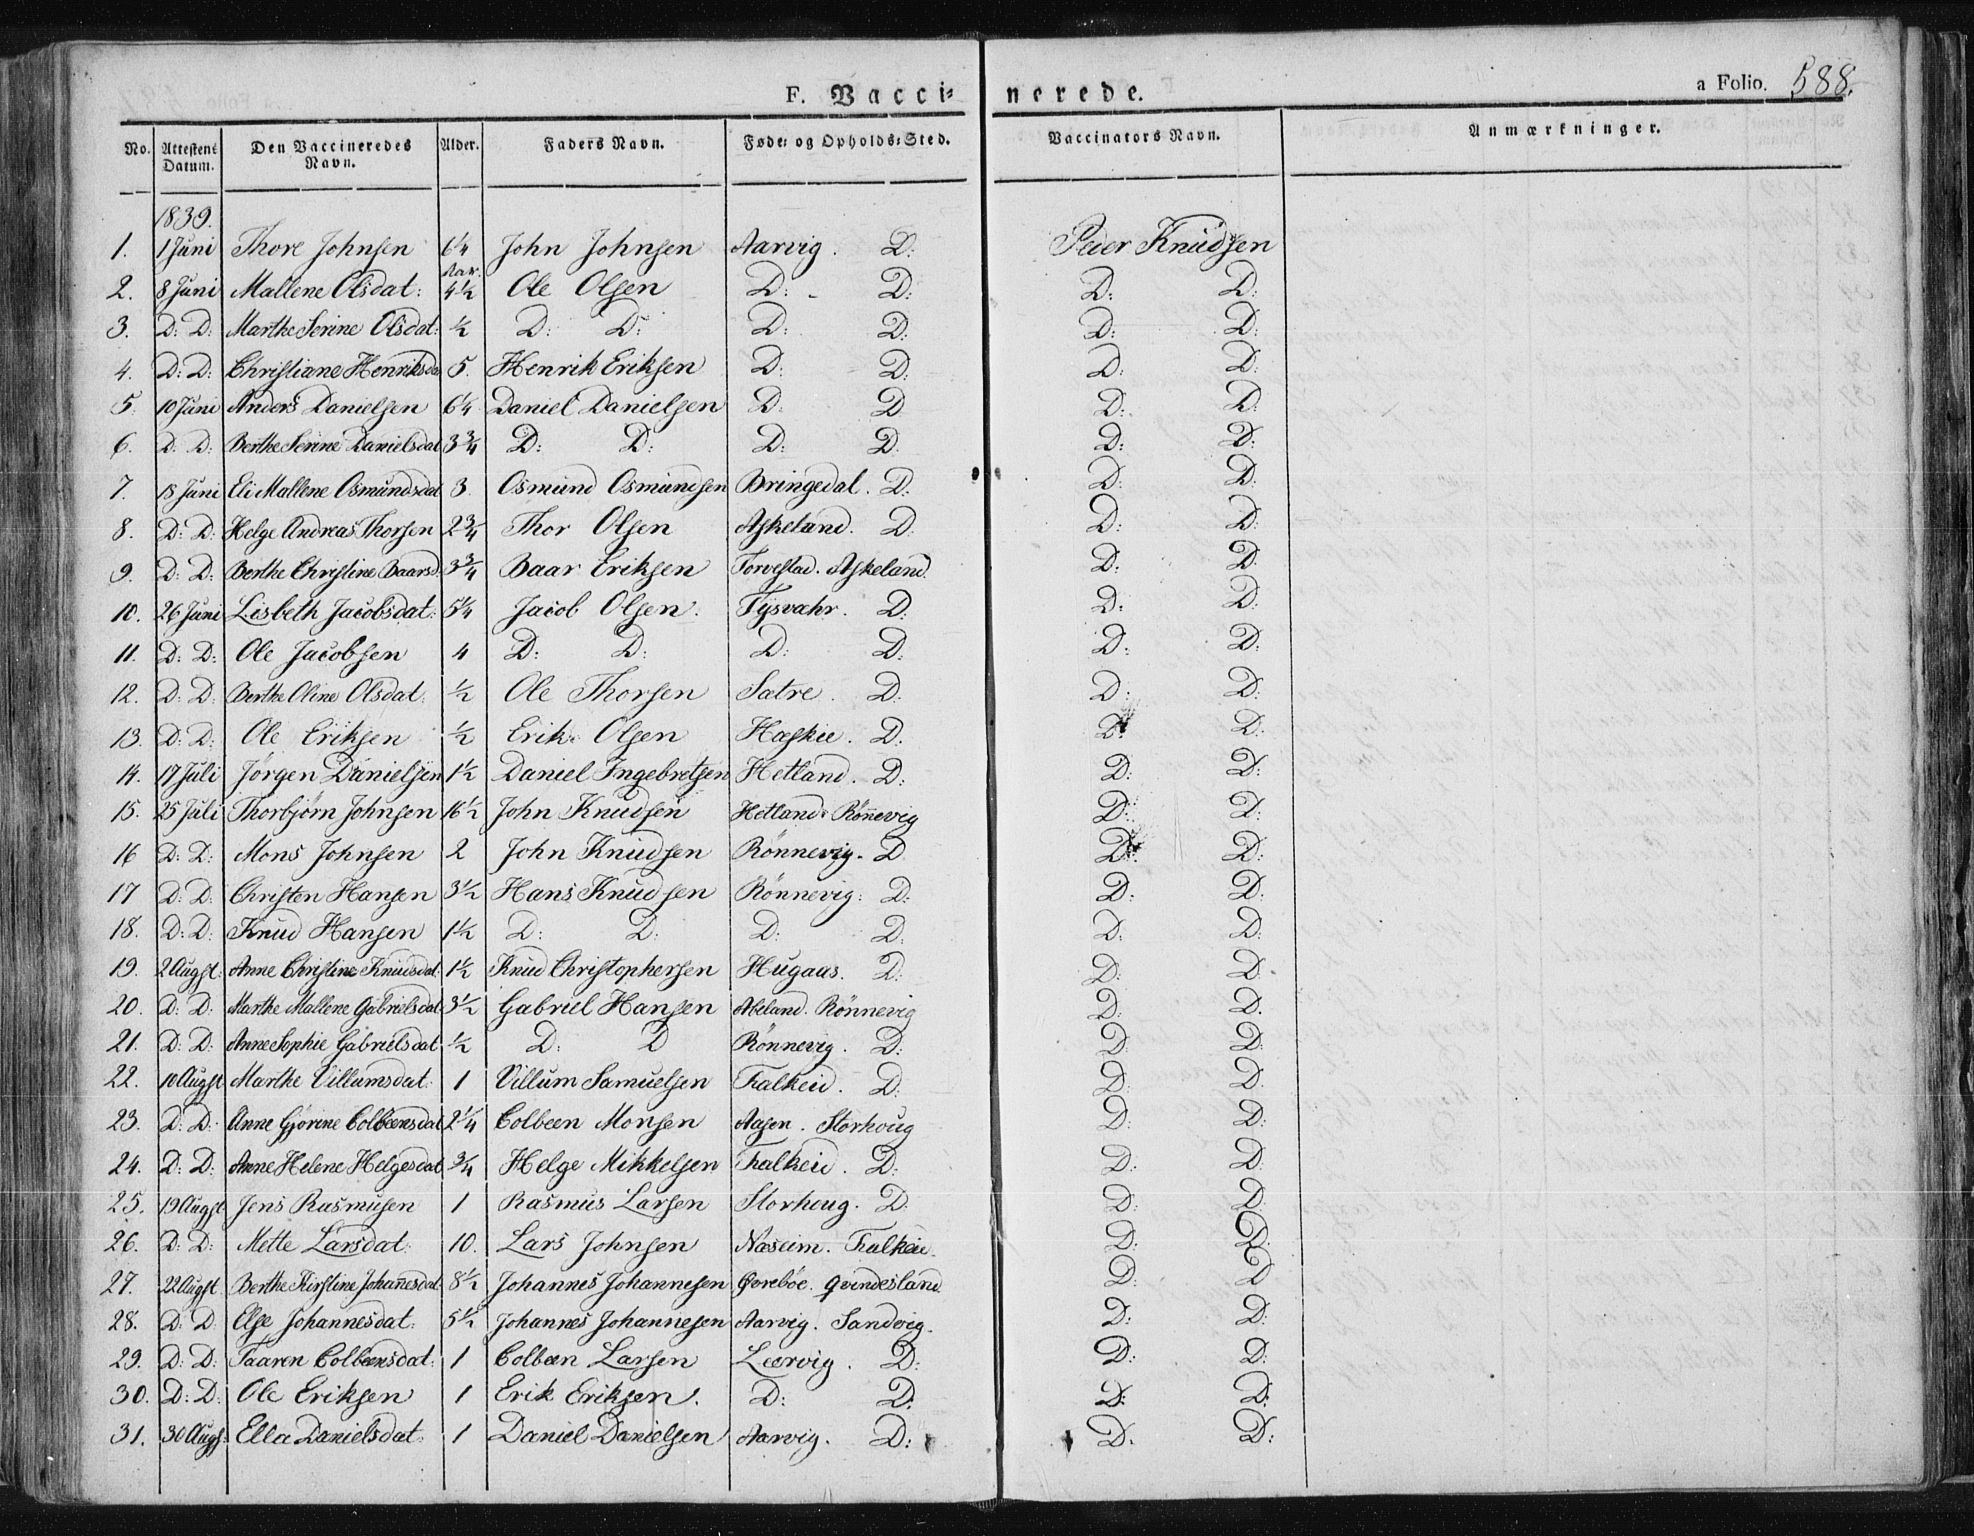 F. Vaccinerede. a Folio. 588.
No. Attestens Datum. Den Vaccineredes Navn. Alder. Faders Navn. Føde- og Opholds-Sted. Vaccinators Navn. Anmærkninger.
1839.
1. 1 Juni Thore Johnsen 6¼ Aar. John Johnsen Aarvig. D: Peder Knudsen
2. 8 Juni Mallene Olsdat: 4½ Ole Olsen D: D: D: D:
3. D: D: Marthe Serine Olsdat: ½ D: D: D: D: D: D:
4. D: D: Christiane Henriksda 5. Henrik Eriksen D: D: D: D:
5. 10 Juni Anders Danielsen 6¼ Daniel Danielsen D: D D: D:
6. D: D: Berthe Serine Danielsdat 3¾ D: D: D: D. D: D:
7. 15 Juni Eli Mallene Osmundsdat 3. Osmund Osmundsen Bringedal. D: D: D:
8. D: D: Helge Andreas Thorsen 2¾ Thor Olsen Askeland. D. D: D:
9. D: D: Berthe Christine Baarsd. 3¾ Baar Eriksen Torvestad. Askeland. D: D:
10. 26 Juni Lisbeth Jacobsdat: 5¼ Jacob Olsen. Tysvæhr. D: D: D:
11. D: D: Ole Jacobsen 4 D: D: D: D: D: D:
12. D: D: Berthe Oline Olsdat: ½ Ole Thorsen Satre. D: D: D:
13. D: D: Ole Eriksen ½ Erik Olsen Hæskie. D: D: D:
14. 17 Juli Jörgen Danielsen 1½ Daniel Ingebretsen Hetland. D: D: D:
15. 25 Juli Thorbjörn Johnsen 16½ John Knudsen Hetland. Rönnevig D: D:
16 D: D: Mons Johnsen 2 John Knudsen Rönnevig. D D: D:
17 D: D: Christen Hansen 3½ Hans Knudsen Rönnevig: D: D: D:
18. D: D: Knud Hansen 1½ D: D: D: D: D: D:
19. 2 Augst: Anne Christine Knudsdat: 1½ Knud Christophersen Hugaas. D: D: D:
20. D: D: Marthe Mallene Gabrielsdat 3½ Gabriel Hansen Abeland. Rönnevig D: D.
21. D: D: Anne Sophie Gabrielsdat ½ D: D Rönnevig. D: D: D:
22. 10 Augst Marthe Villumsdat: 1 Villum Samuelsen Falkeid. D: D: D.
23. D: D: Anne Gjørine Colbeensdat 2¼ Colbeen Monsen Aasen. Storhoug D: D:
24. D: D: Anne Helene Helgesdat ¾ Helge Mikkelsen Falkeid. D: D: D:
25. 19 Augst Jens Rasmusen 1 Rasmus Larsen Storhoug. D: D: D:
26. D: D: Mette Larsdat: 10. Lars Johnsen Næseim. Falkeid. D: D:
27. 22 Augst Berthe Kirstine Johanesdat 8½ Johannes Johannesen Øvreböe. Qvindesland. D: D
28. D: D Else Johannesdat: 5½ Johannes Johannesen Aarvig. Sandvig. D: D:
29. D: D: Taaren Colbeensdat: 1 Colbeen Larsen Leervig. D: D: D:
30. D: D: Ole Eriksen 1 Erik Eriksen. D: D. D: D:
31. 30 Augs: Ella Danielsdat: 1 Daniel Danielsen Aarvig. D: D: D: